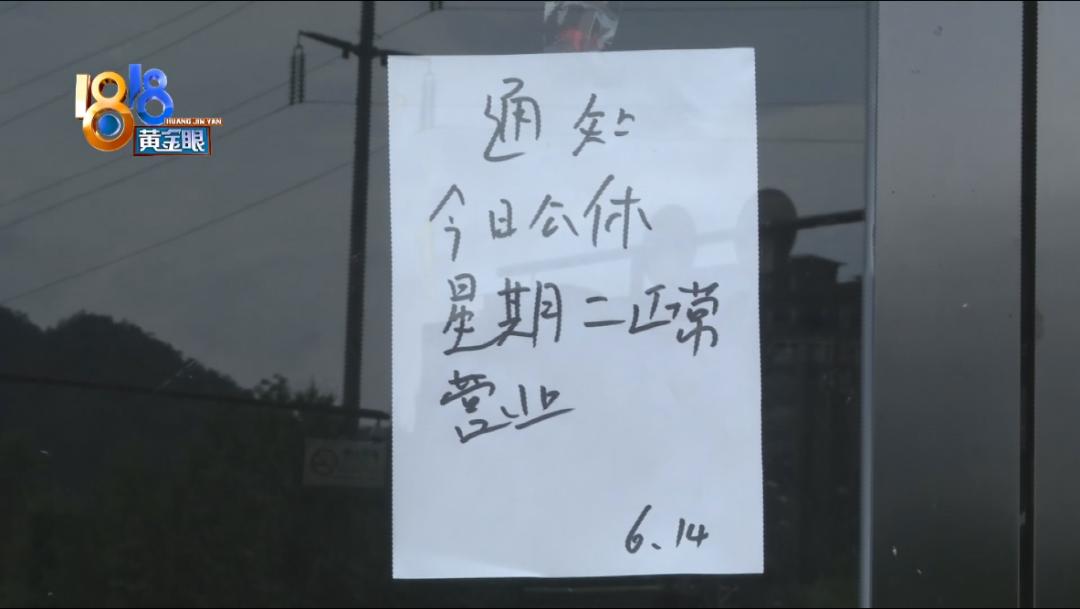 1818
HUANG JIN YAN
黄金眼
通知
今日公休
星期二正常
营业
6.14